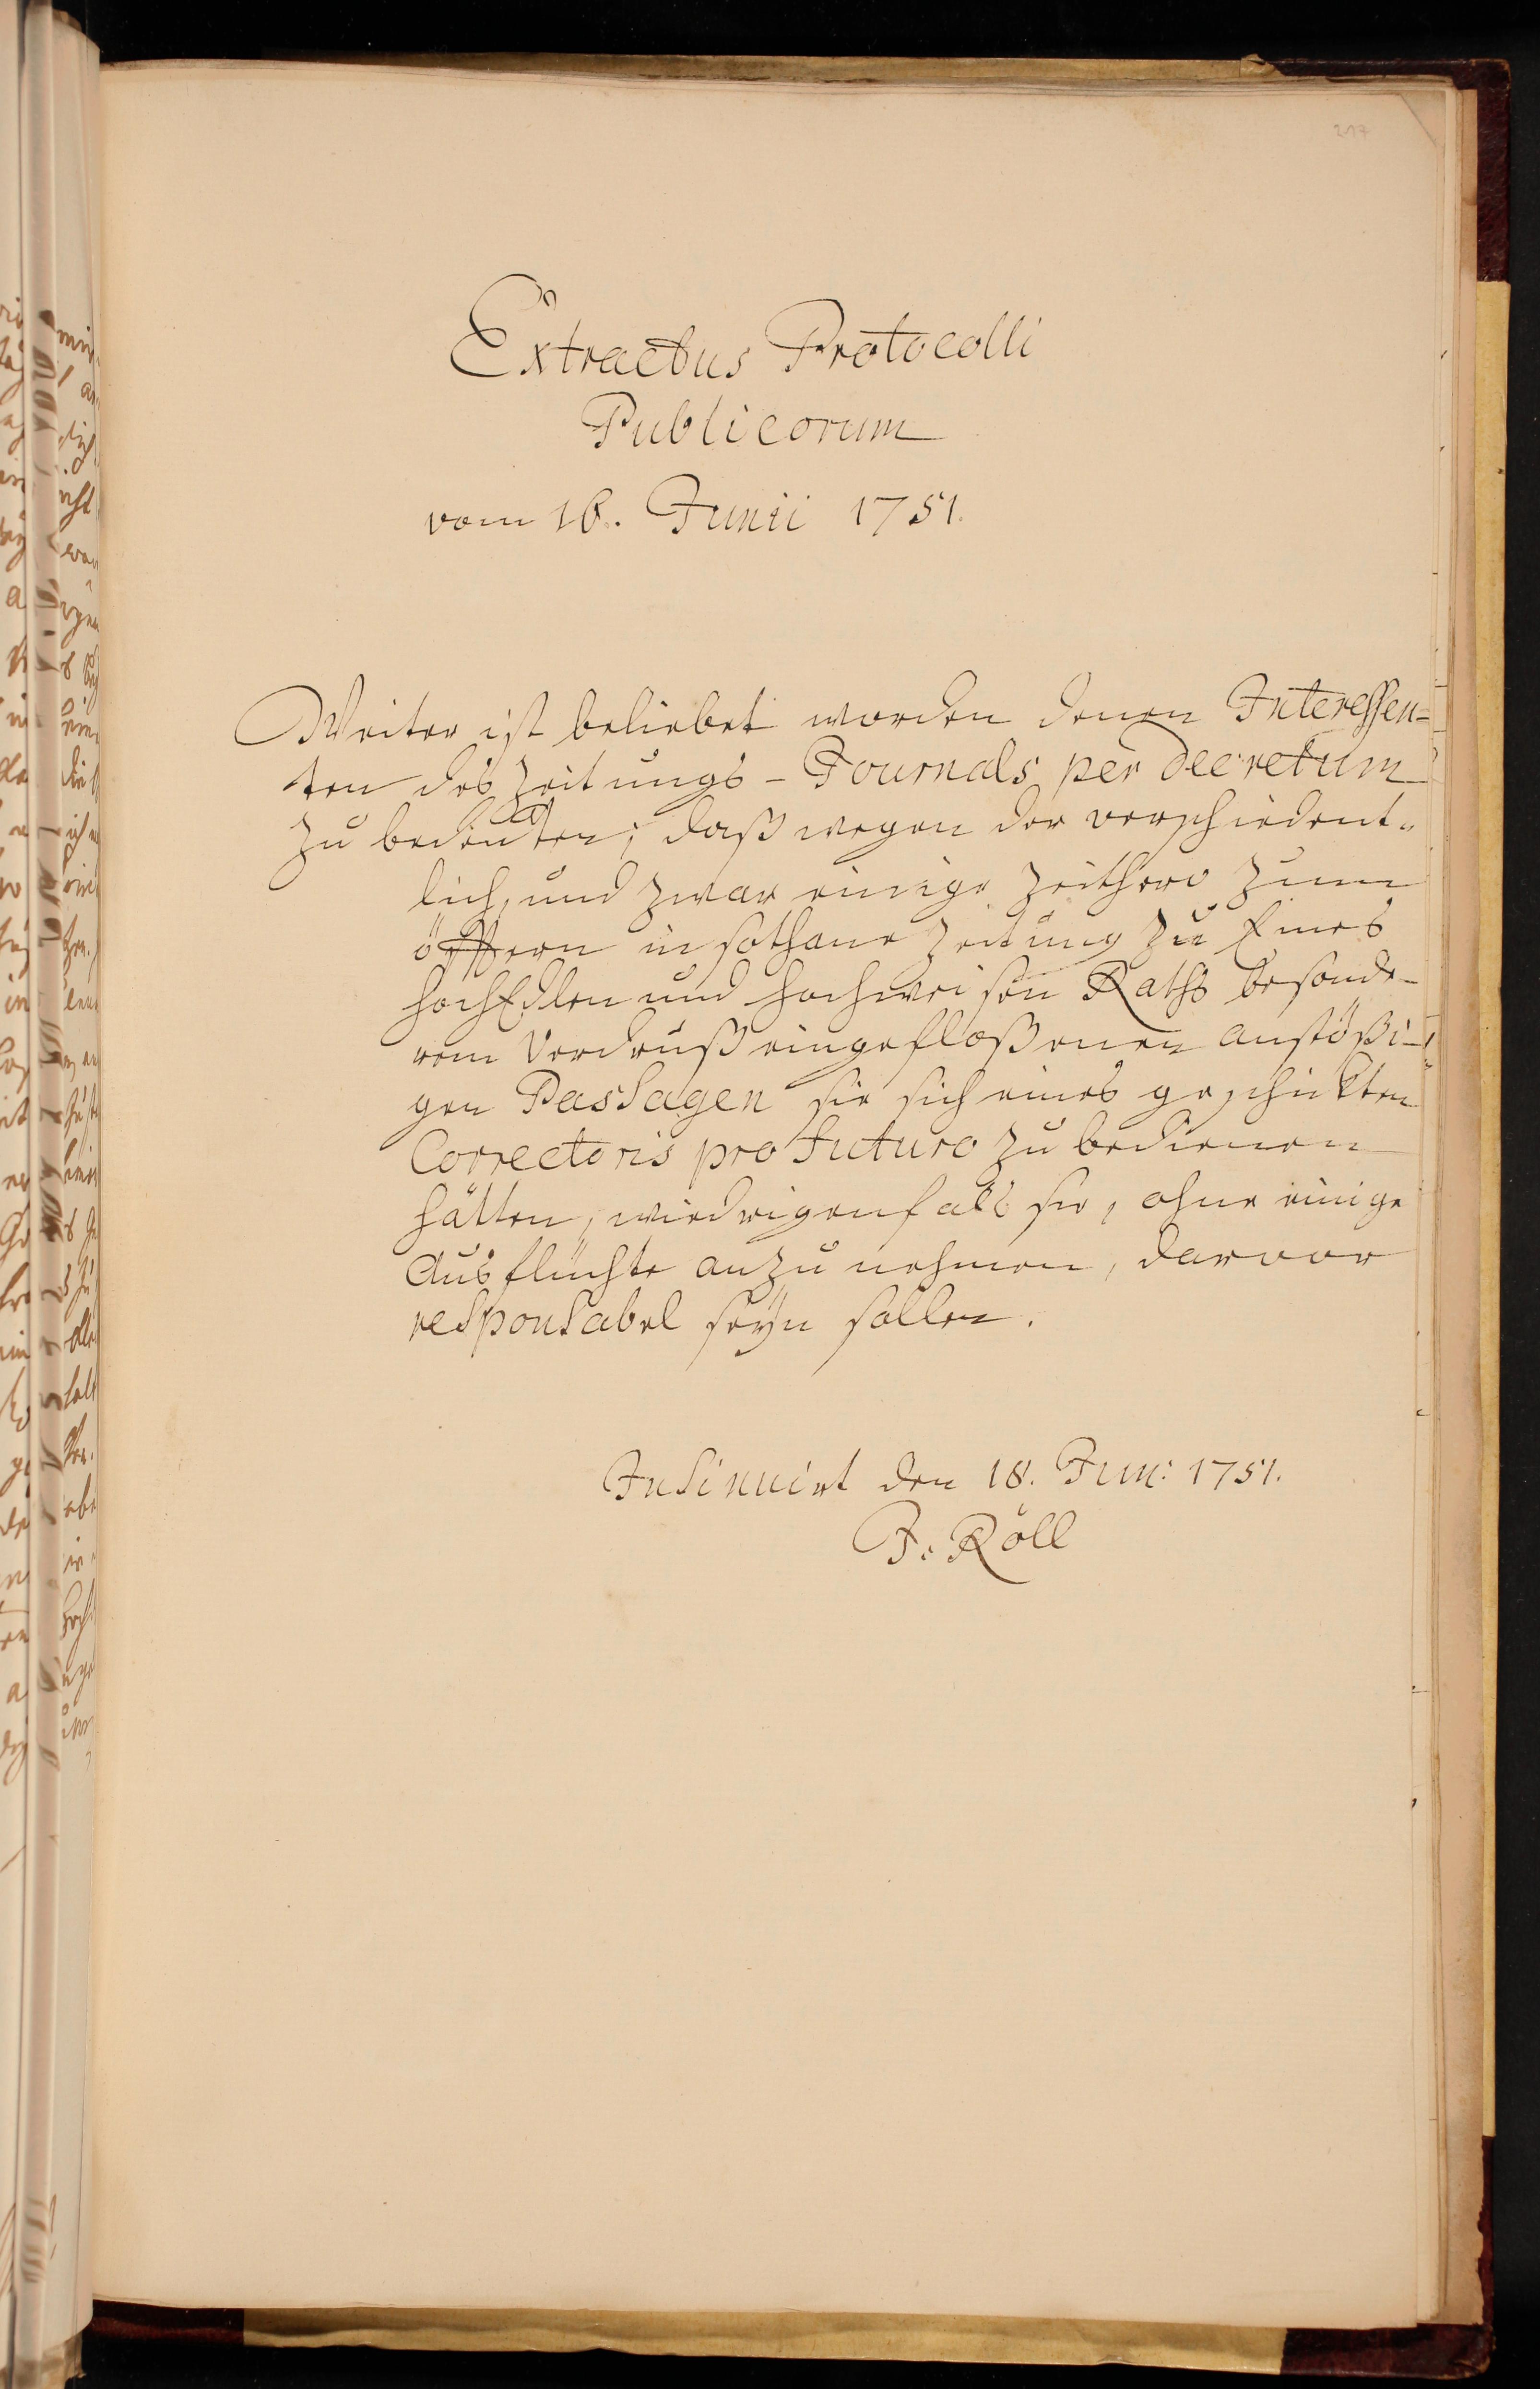 217
Extractus Protocolli
Publicorum
vom 16. Junii 1751.
Weiter ist beliebet worden denen Interessen=
ten des Zeitungs-Journals per decretum
zu bedeuten; daß wegen der verschiedent-
lich, und zwar einige Zeithero zum
öfftern in sothane Zeitung zu Eines
HochEdlen und Hochweisen Raths besonde-
rem Verdruß eingefloßenen anstößi-
gen Passagen sie sich eines geschickten
Correctoris pro futuro zu bedienen
hätten, wiedrigenfalls sie, ohne einige
Ausflüchte anzunehmen, darvor
responsabel seyn sollen.
Insinuirt den 18. Jun: 1751.
J. Röll